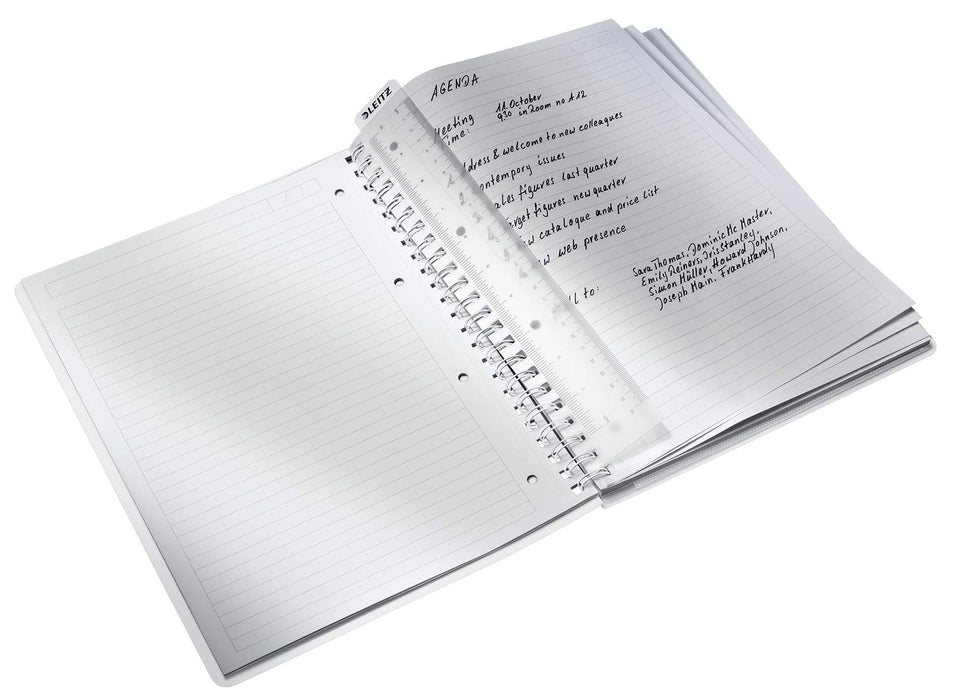 LEITZ
AGENDA
Meeting 11. October
Time: 9.30 in Room no A12
dress & welcome to new colleagues
ontempory issues
ales figures last quarter
arget figures new quarter
w catalogue and price list
w web presence
ll to: Sara Thomas, Dominic Mc Master,
Emily Reiners, Iris Stanley,
Simon Müller, Howard Johnson,
Joseph Main, Frank Hardy